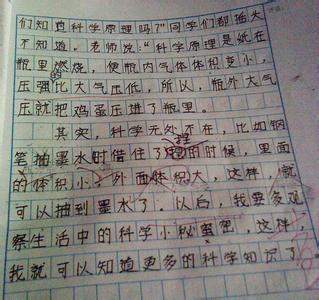 们知道科学原理吗?”同学们都摇大
不知道。老师说:“科学原理是纸在
瓶里燃烧,使瓶内气体体积变小,
压强比大气压低,所以,瓶外大气
压就把鸡蛋压进了瓶里。
其实,科学无处不在,比如钢
笔抽墨水时借住了的时候,里面
的体积小,外面体积大,这样,就
可以抽到墨水了。以后,我要多观
察生活中的科学小秘密,这样,
我就可以知道更多的科学知识了。